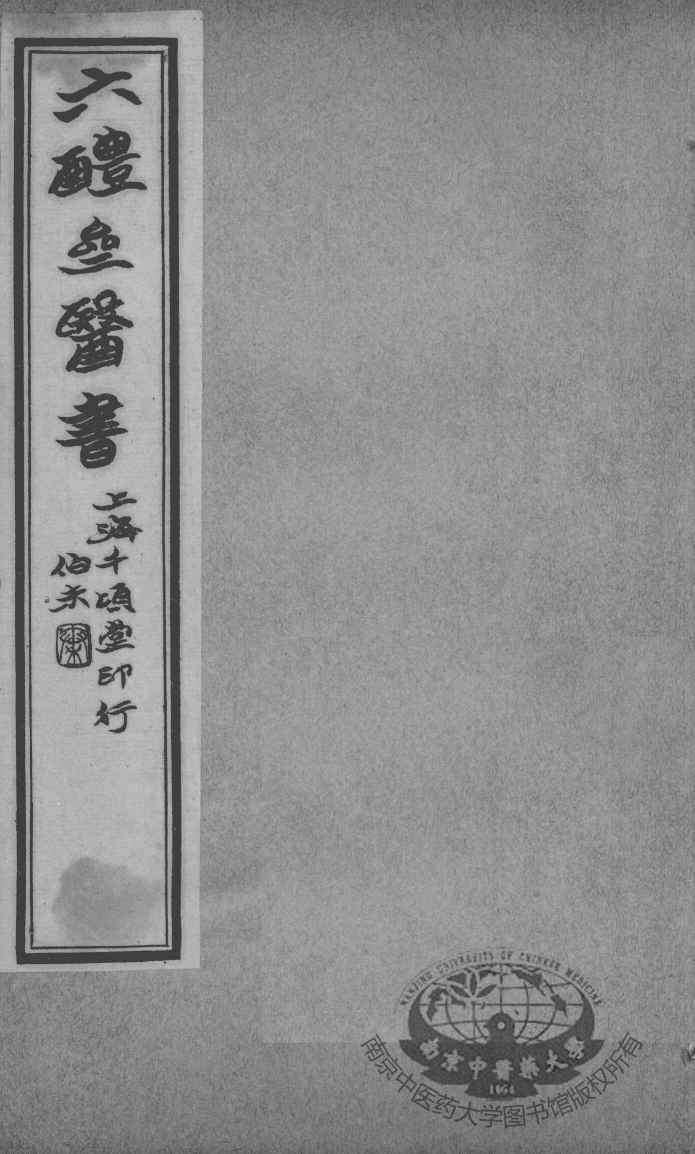 六醴㕘醫書
上海千頃堂印行
伯未
NANJING UNIVERSITY OF CHINESE MEDICINE
南京中醫藥大學
1954
南京中医药大学图书馆版权所有